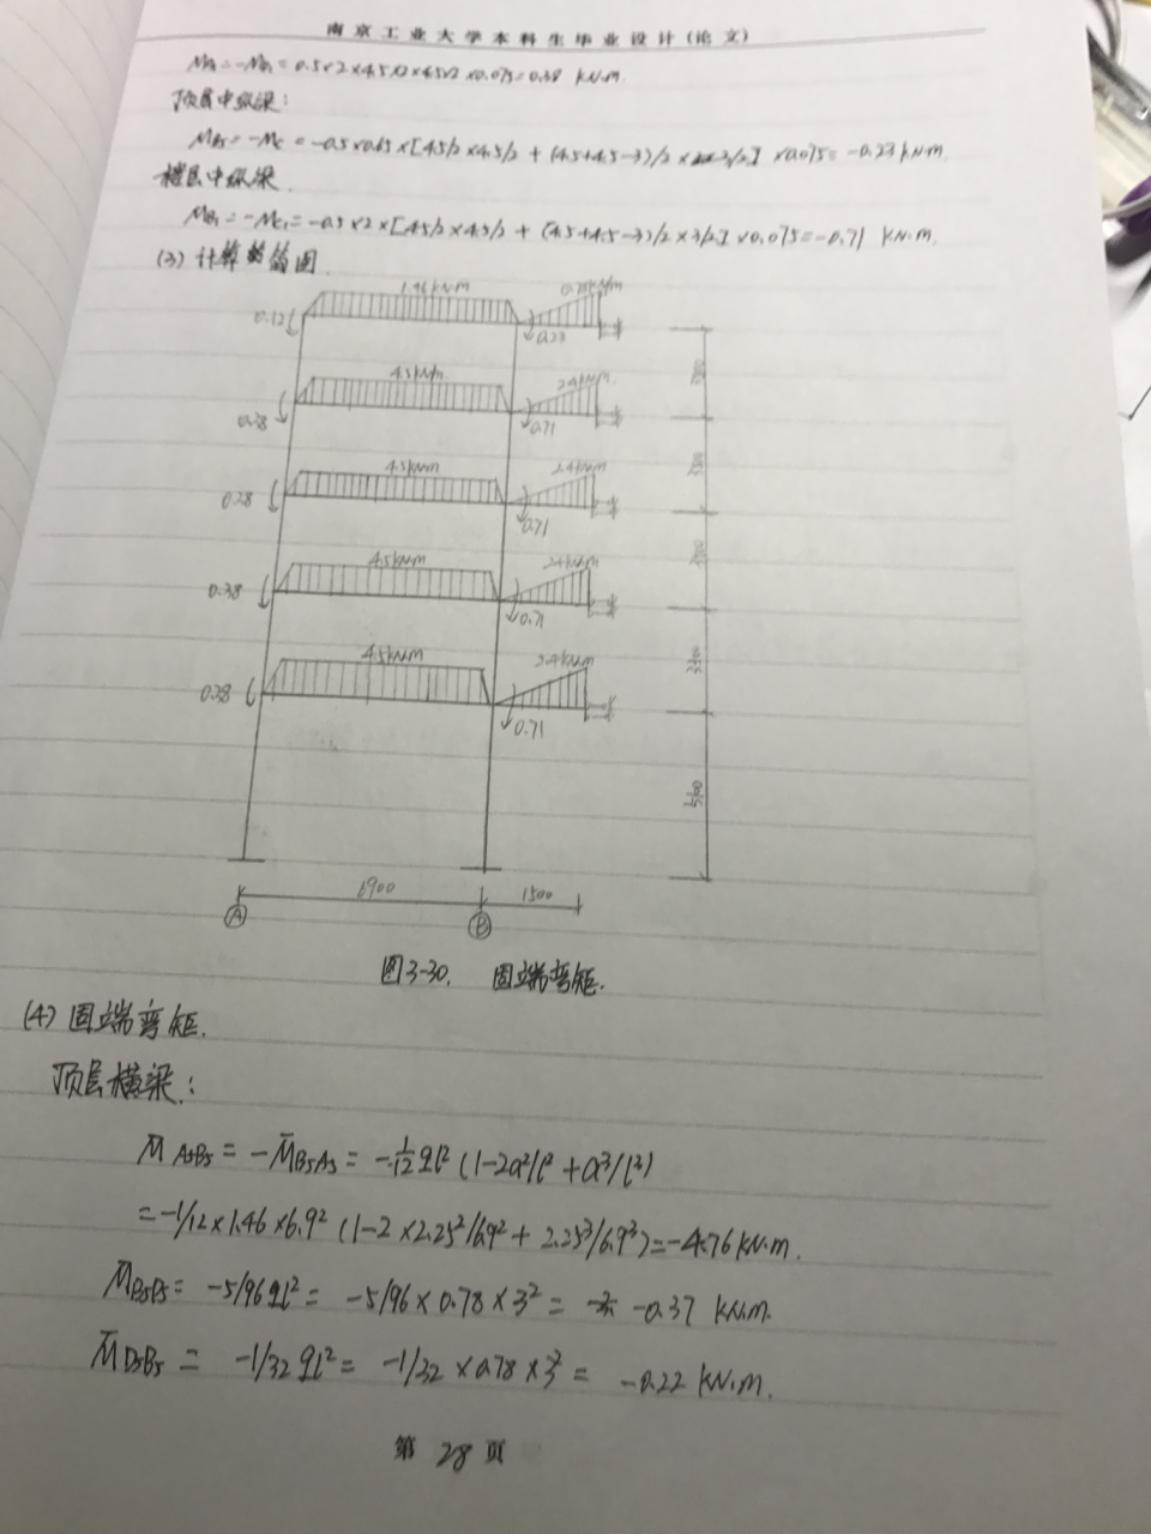 南京工业大学本科生毕业设计(论文)
MA=-MB1=0.5×2×4.5/2×4.5/2×0.075=0.38 kN·m.
顶层中纵梁:
MB5=-MC=-0.5×0.65×[4.5/2×4.5/2+(4.5+4.5-3)/2×3/2]×0.075=-0.23kN·m.
楼层中纵梁.
MB1=-MC1=-0.5×2×[4.5/2×4.5/2+(4.5+4.5-3)/2×3/2]×0.075=-0.71 kN·m.
(3)计算简图
1.46kN/m 0.78kN/m
0.12 0.23
4.5kN/m 2.4kN/m
0.38 0.71
4.5kN/m 2.4kN/m
0.38 0.71
4.5kN/m 2.4kN/m
0.38 0.71
4.5kN/m 2.4kN/m
0.38 0.71
6900 1500
A B
图3-30. 固端弯矩.
(4)固端弯矩.
顶层横梁:
M̄A5B5=-M̄B5A5=-1/12ql²(1-2a²/l²+a³/l³)
=-1/12×1.46×6.9²(1-2×2.25²/6.9²+2.25³/6.9³)=-4.76kN·m.
M̄B5D5=-5/96ql²=-5/96×0.78×3²=-0.37 kN·m.
M̄D5B5=-1/32ql²=-1/32×0.78×3²=-0.22 kN·m.
第 28 页